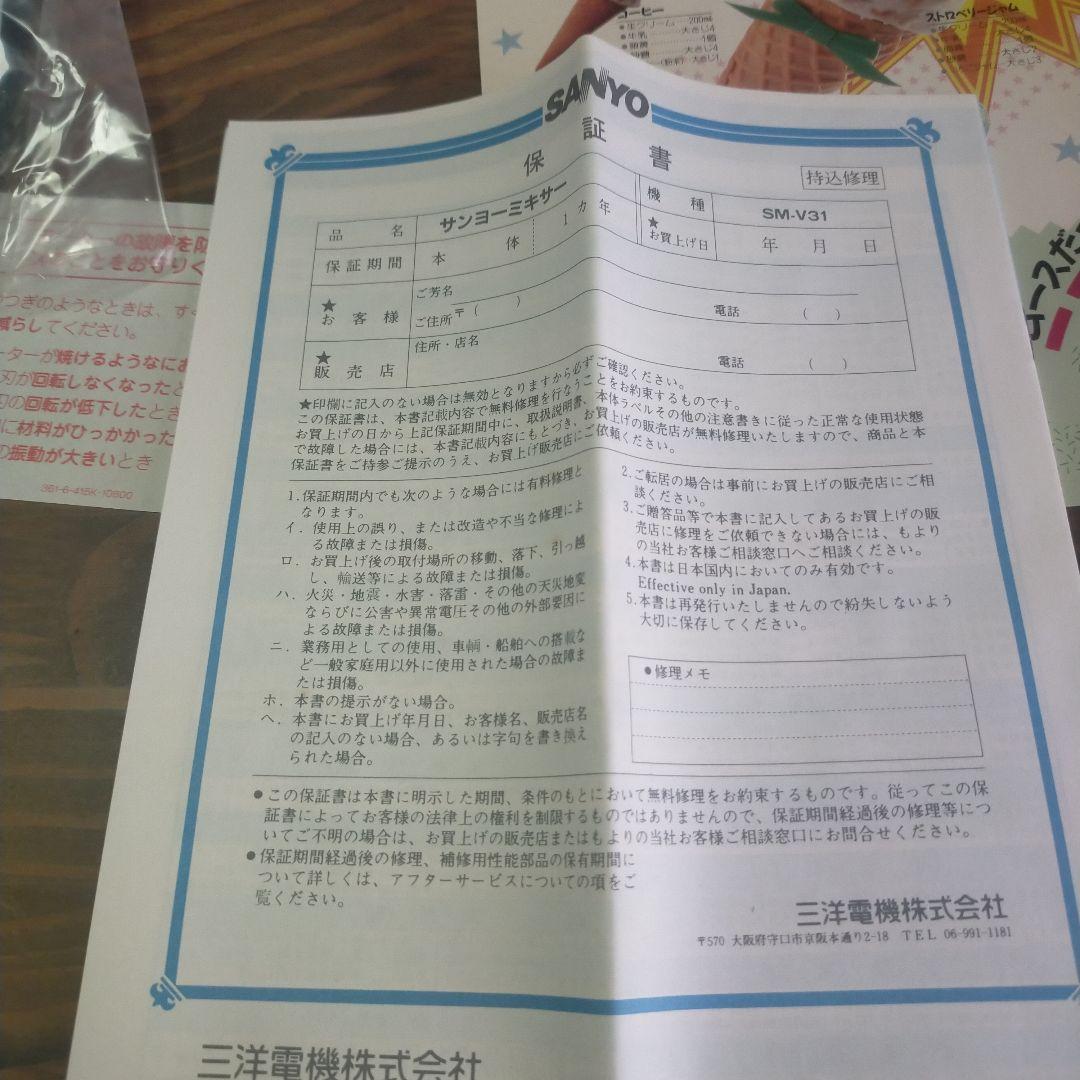 コーヒー
●生クリーム……200㎖
●牛乳……大さじ4
ストロベリージャム
SANYO
保証書
持込修理
品名 サンヨーミキサー 機種 SM-V31
保証期間 本体 1カ年 ★お買上げ日 年 月 日
★お客様 ご芳名
ご住所 〒( ) 電話 ( )
★販売店 住所・店名 電話 ( )
★印欄に記入のない場合は無効となりますから必ずご確認ください。
この保証書は、本書記載内容で無料修理を行なうことをお約束するものです。
お買上げの日から上記保証期間中に、取扱説明書、本体ラベルその他の注意書きに従った正常な使用状態
で故障した場合には、本書記載内容にもとづき、お買上げの販売店が無料修理いたしますので、商品と本
保証書をご持参ご提示のうえ、お買上げ販売店にご依頼ください。
1.保証期間内でも次のような場合には有料修理と
なります。
イ.使用上の誤り、または改造や不当な修理によ
る故障または損傷。
ロ.お買上げ後の取付場所の移動、落下、引っ越
し、輸送等による故障または損傷。
ハ.火災・地震・水害・落雷・その他の天災地変
ならびに公害や異常電圧その他の外部要因に
よる故障または損傷。
ニ.業務用としての使用、車輌・船舶への搭載な
ど一般家庭用以外に使用された場合の故障ま
たは損傷。
ホ.本書の提示がない場合。
ヘ.本書にお買上げ年月日、お客様名、販売店名
の記入のない場合、あるいは字句を書き換え
られた場合。
2.ご転居の場合は事前にお買上げの販売店にご相
談ください。
3.ご贈答品等で本書に記入してあるお買上げの販
売店に修理をご依頼できない場合には、もより
の当社お客様ご相談窓口へご相談ください。
4.本書は日本国内においてのみ有効です。
Effective only in Japan.
5.本書は再発行いたしませんので紛失しないよう
大切に保存してください。
●修理メモ
●この保証書は本書に明示した期間、条件のもとにおいて無料修理をお約束するものです。従ってこの保
証書によってお客様の法律上の権利を制限するものではありませんので、保証期間経過後の修理等につ
いてご不明の場合は、お買上げの販売店またはもよりの当社お客様ご相談窓口にお問合せください。
●保証期間経過後の修理、補修用性能部品の保有期間に
ついて詳しくは、アフターサービスについての項をご
覧ください。
三洋電機株式会社
〒570 大阪府守口市京阪本通り2-18 TEL 06-991-1181
三洋電機株式会社
の故障を防
ことをお守りく
つぎのようなときは、す
減らしてください。
ーターが焼けるようなにお
刃が回転しなくなったと
刃の回転が低下したとき
に材料がひっかかった
の振動が大きいとき
361-6-415K-10600
ースだ